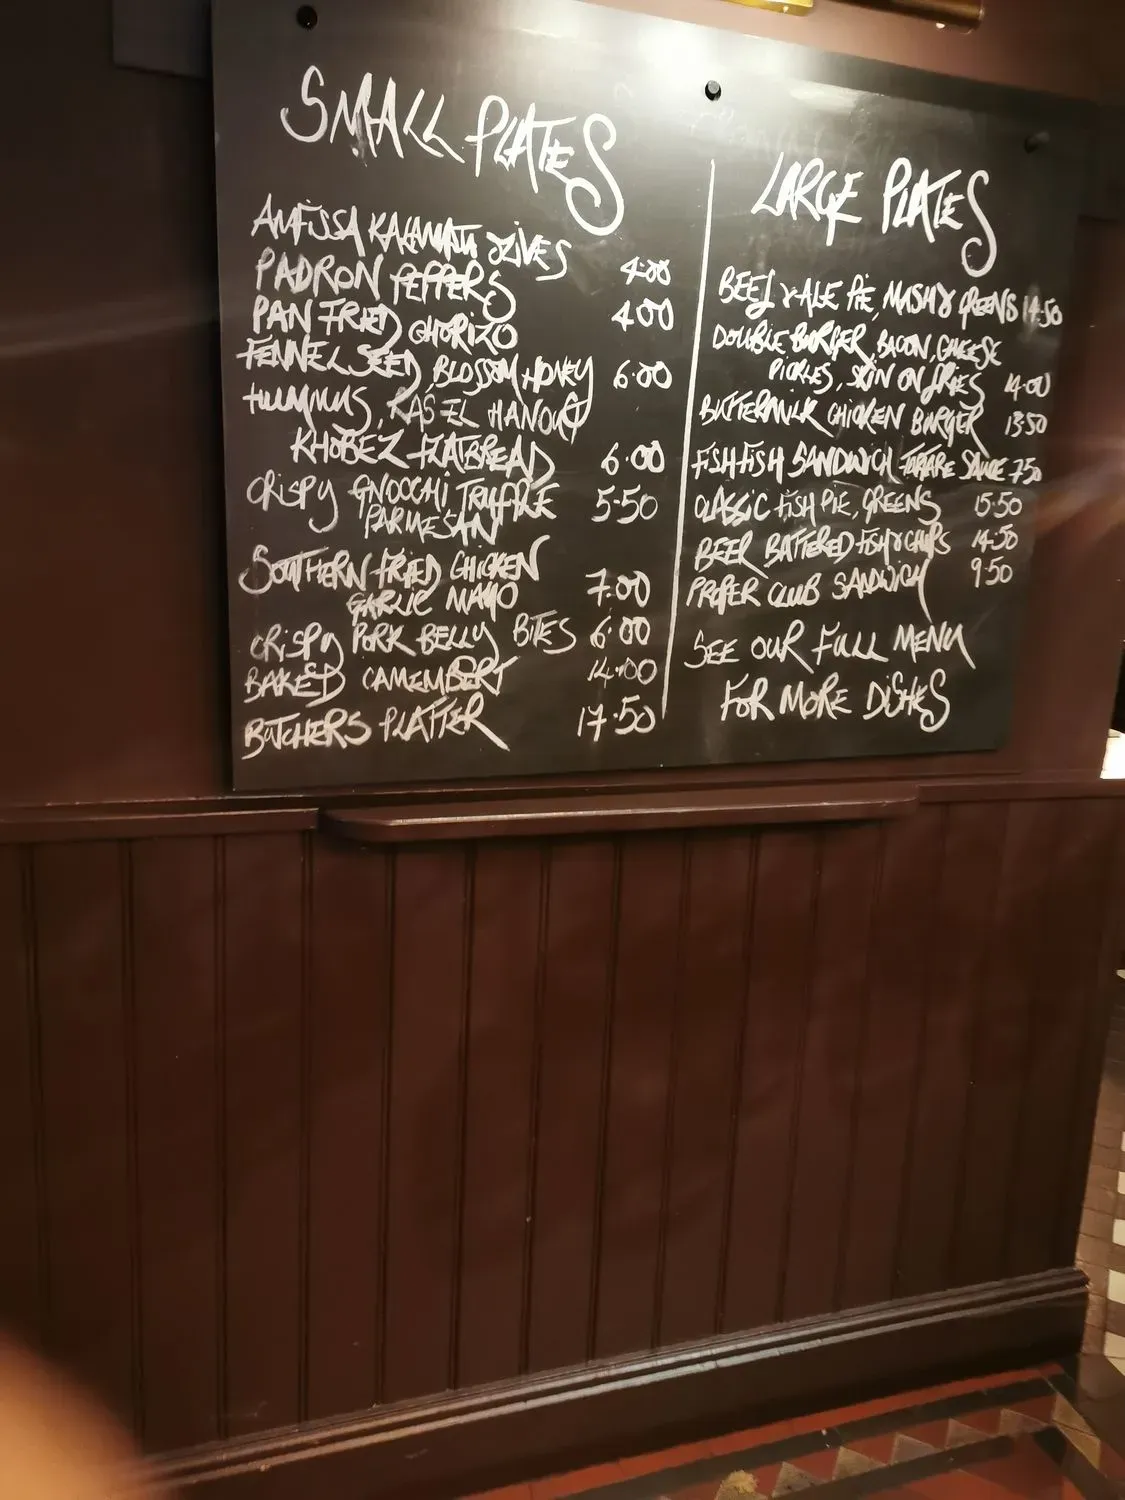 SMALL PLATES
AMFISSA KALAMATA OLIVES 4.00
PADRON PEPPERS 4.00
PAN FRIED CHORIZO
FENNEL SEED, BLOSSOM HONEY 6.00
HUMMUS, RAS EL HANOUT
KHOBEZ FLATBREAD 6.00
CRISPY GNOCCHI TRUFFLE 5.50
PARMESAN
SOUTHERN FRIED CHICKEN
GARLIC MAYO 7.00
CRISPY PORK BELLY BITES 6.00
BAKED CAMEMBERT 14.00
BUTCHERS PLATTER 17.50
LARGE PLATES
BEEF & ALE PIE, MASH & GREENS 14.50
DOUBLE BURGER, BACON, CHEESE
PICKLES, SKIN ON FRIES 14.00
BUTTERMILK CHICKEN BURGER 13.50
FISH FISH SANDWICH TARTARE SAUCE 7.50
CLASSIC FISH PIE, GREENS 15.50
BEER BATTERED FISH & CHIPS 14.50
PROPER CLUB SANDWICH 9.50
SEE OUR FULL MENU
FOR MORE DISHES